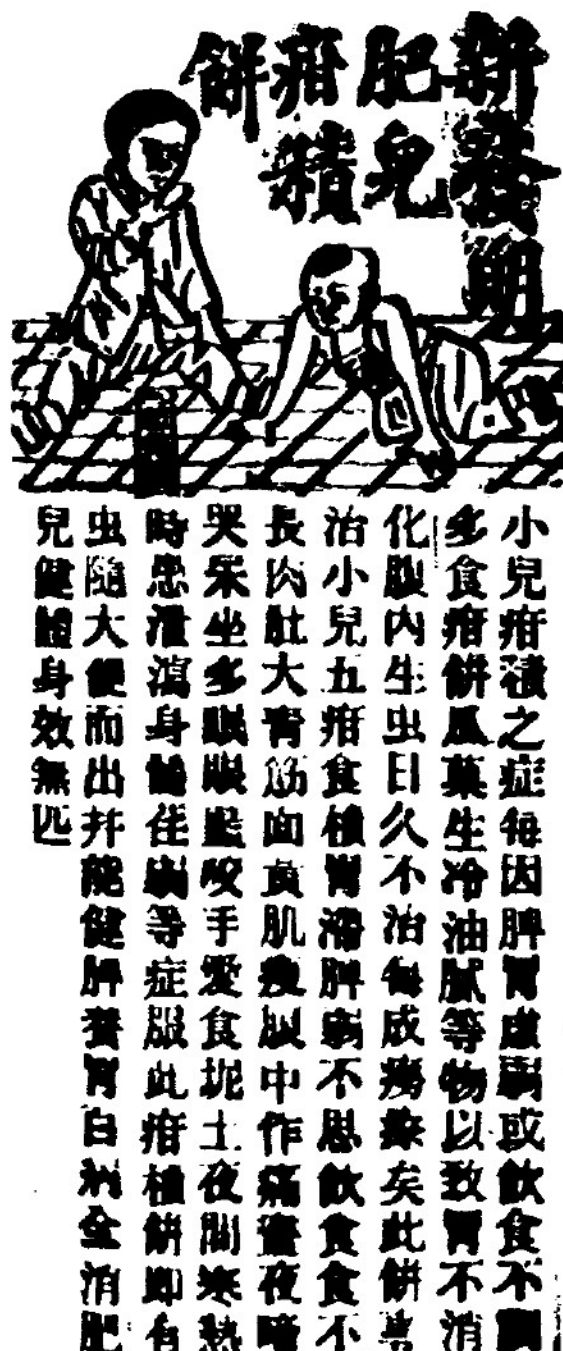 新發明
肥兒
疳積
餅
小兒疳積之症每因脾胃虛弱或飲食不調
多食疳餅瓜菓生冷油膩等物以致胃不消
化腹內生虫日久不治每成癆瘵矣此餅專
治小兒五疳食積胃滯脾弱不思飲食食不
長肉肚大青筋面黃肌瘦腹中作痛晝夜啼
哭呆坐多眼眼藍咬手愛食坭土夜間寒熱
時患泄瀉身體佳弱等症服此疳積餅即有
虫隨大便而出并能健脾養胃白濁全消肥
兒健體身效無匹